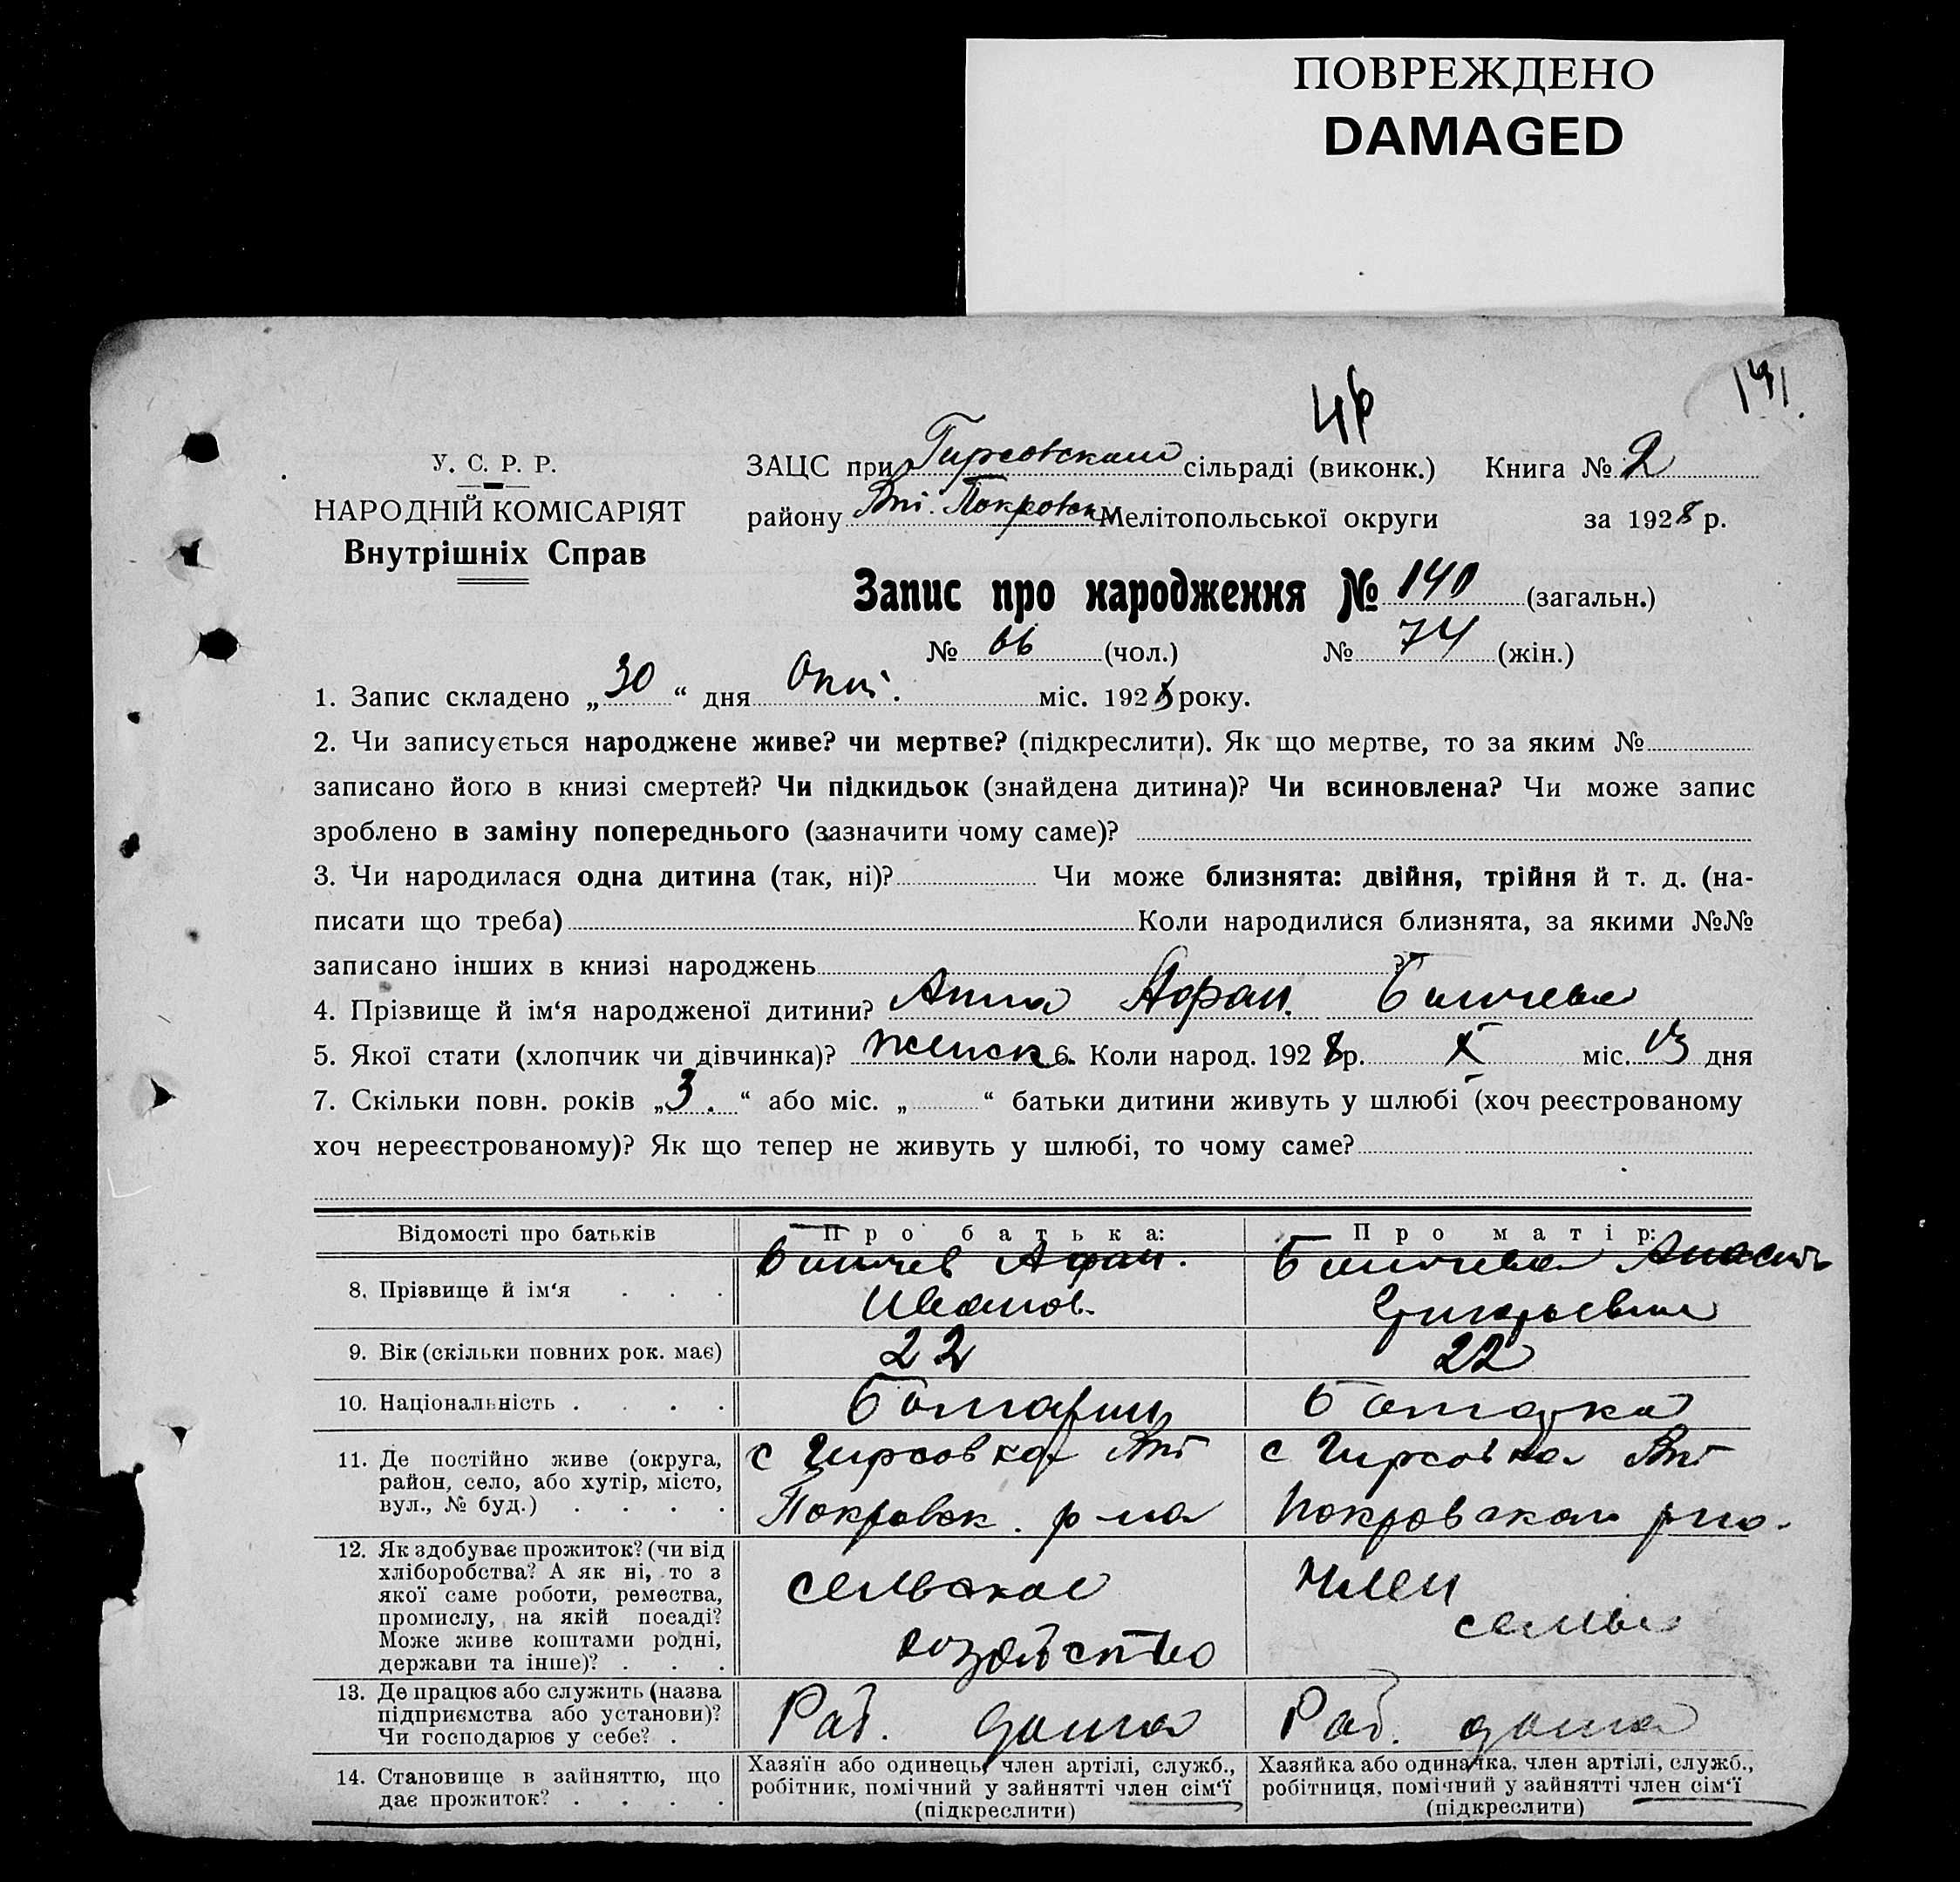 ПОВРЕЖДЕНО
DAMAGED
46
141.
У. С. Р. Р.
НАРОДНІЙ КОМІСАРІЯТ
Внутрішніх Справ
ЗАЦС при Гирсовском сільраді (виконк.) Книга № 2
району Покровск Мелітопольської округи за 1928 р.
Запис про народження № 140 (загальн.)
№ 66 (чол.) № 74 (жін.)
1. Запис складено „30“ дня Окт. міс. 1928 року.
2. Чи записується народжене живе? чи мертве? (підкреслити). Як що мертве, то за яким №
записано його в книзі смертей? Чи підкидьок (знайдена дитина)? Чи всиновлена? Чи може запис
зроблено в заміну попереднього (зазначити чому саме)?
3. Чи народилася одна дитина (так, ні)? Чи може близнята: двійня, трійня й т. д. (на-
писати що треба) Коли народилися близнята, за якими №№
записано інших в книзі народжень ?
4. Прізвище й ім‘я народженої дитини? Анна Афан.
5. Якої стати (хлопчик чи дівчинка)? женск 6. Коли народ. 1928 р. X міс. 13 дня
7. Скільки повн. років „3.“ або міс. „ “ батьки дитини живуть у шлюбі (хоч реєстрованому
хоч нереєстрованому)? Як що тепер не живуть у шлюбі, то чому саме?
Відомості про батьків Про батька: Про матір:
8. Прізвище й ім‘я . . . Афан. Иванов. Григорьевна
9. Вік (скільки повних рок. має) 22 22
10. Національність . . . . Болгарин Болгарка
11. Де постійно живе (округа,
район, село, або хутір, місто,
вул., № буд.) . . . .
с Гирсовка
Покровск. р-на
с Гирсовка
Покровском
12. Як здобуває прожиток? (чи від
хліборобства? А як ні, то з
якої саме роботи, ремества,
промислу, на якій посаді?
Може живе коштами родні,
держави та інше)? . . .
сельское
хозяйство
член
семьи
13. Де працює або служить (назва
підприємства або установи)?
Чи господарює у себе? .
Раб. дома
Раб. дома
14. Становище в зайняттю, що
дає прожиток? . . . .
Хазяїн або одинець, член артілі, служб.,
робітник, помічний у зайнятті член сім‘ї
(підкреслити)
Хазяйка або одиначка, член артілі, служб.,
робітниця, помічний у зайнятті член сім‘ї
(підкреслити)